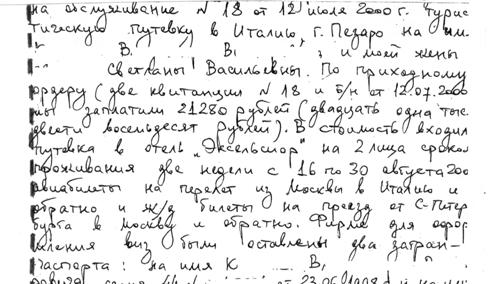 на обслуживание N 18 от 12 июля 2000 г. турис
тическую путевку в Италию г. Пезаро на им.
В. В. и моей жены
Светланы Васильевны. По приходному
ордеру (две квитанции N 18 и б/н от 12.07.2000
мы заплатили 21280 рублей (двадцать одна тыс.
двести восемьдесят рублей). В стоимость входил
путевка в отель „Эксельсиор" на 2 лица сроком
проживания две недели с 16 по 30 августа 200
авиабилеты на перелет из Москвы в Италию и
обратно и ж/д билеты на проезд от С-Питер
бурга в Москву и обратно. Фирме для офор
мления виз были оставлены два загран-
паспорта: на имя К В.
серия от 23.06.1998